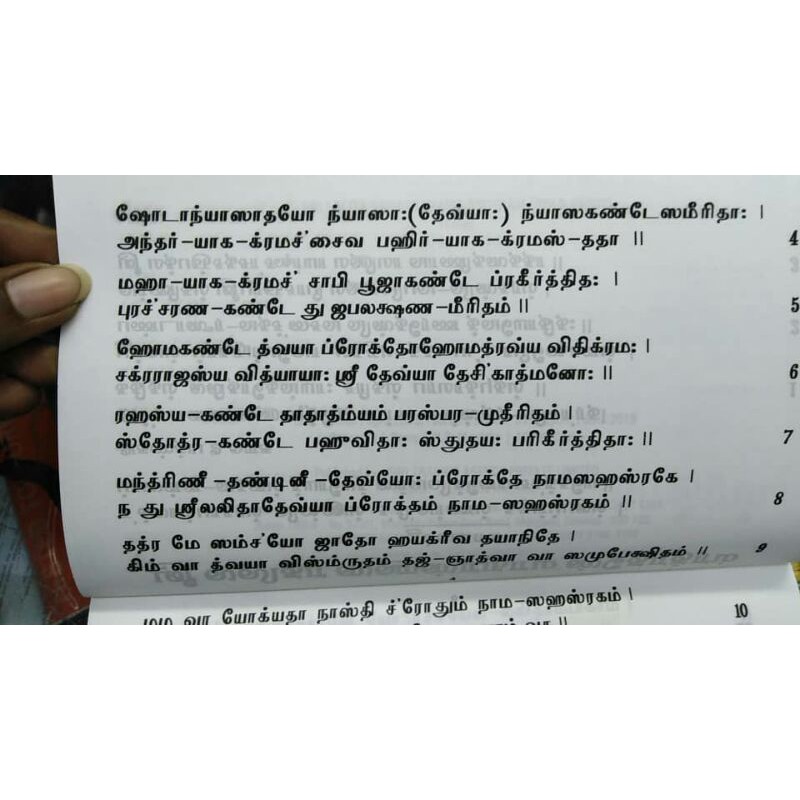 ஷோடாந்யாஸாதயோ ந்யாஸா:(தேவ்யா:) ந்யாஸகண்டேஸமீரிதா: |
அந்தர்-யாக-க்ரமச்'சைவ பஹிர்-யாக-க்ரமஸ்-ததா || 4
மஹா-யாக-க்ரமச்' சாபி பூஜாகண்டே ப்ரகீர்த்தித: |
புரச்'சரண-கண்டே து ஜபலக்ஷண-மீரிதம் || 5
ஹோமகண்டே த்வயா ப்ரோக்தோஹோமத்ரவ்ய விதிக்ரம: |
சக்ரராஜஸ்ய வித்யாயா: ஸ்ரீ தேவ்யா தேசி'காத்மனோ: || 6
ரஹஸ்ய-கண்டே தாதாத்ம்யம் பரஸ்பர-முதீரிதம் |
ஸ்தோத்ர-கண்டே பஹுவிதா: ஸ்துதய: பரிகீர்த்திதா: || 7
மந்த்ரிணீ-தண்டினீ-தேவ்யோ: ப்ரோக்தே நாமஸஹஸ்ரகே |
ந து ஸ்ரீலலிதாதேவ்யா ப்ரோக்தம் நாம-ஸஹஸ்ரகம் || 8
தத்ர மே ஸம்ச'யோ ஜாதோ ஹயக்ரீவ தயாநிதே |
கிம் வா த்வயா விஸ்ம்ருதம் தஜ்-ஞாத்வா வா ஸமுபேக்ஷிதம் || 9
மம வா யோக்யதா நாஸ்தி ச்'ரோதும் நாம-ஸஹஸ்ரகம் | 10